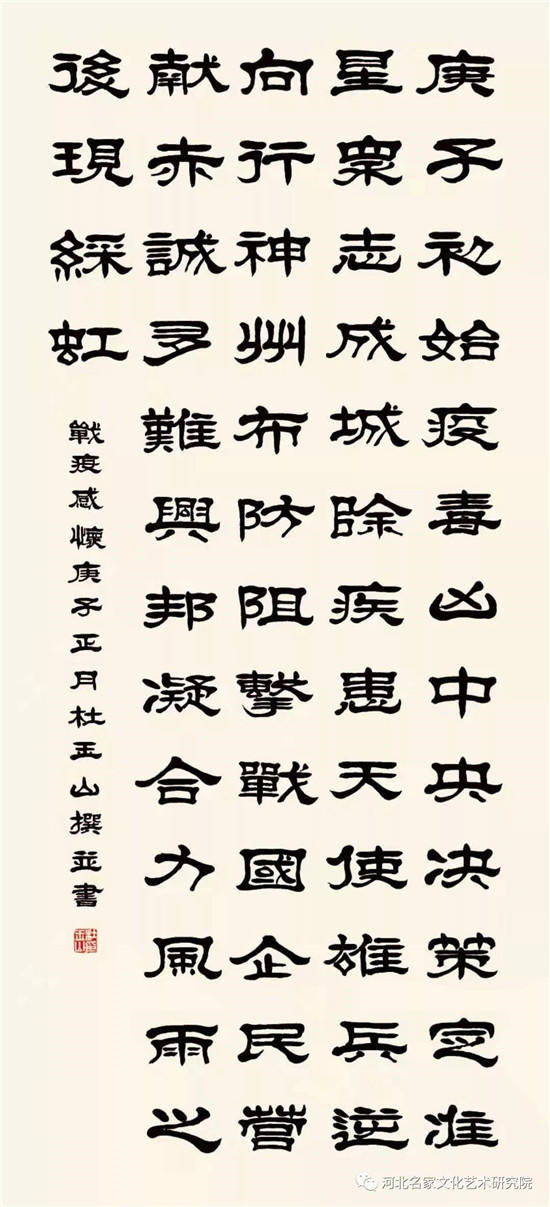 庚子初始疫毒凶中央决策定准
星衆志成城除疾患天使雄兵逆
向行神州布防阻擊戰國企民營
献赤誠多難興邦凝合力風雨之
後現綵虹
戰疫感懷庚子正月杜玉山撰並書
河北名家文化艺术研究院